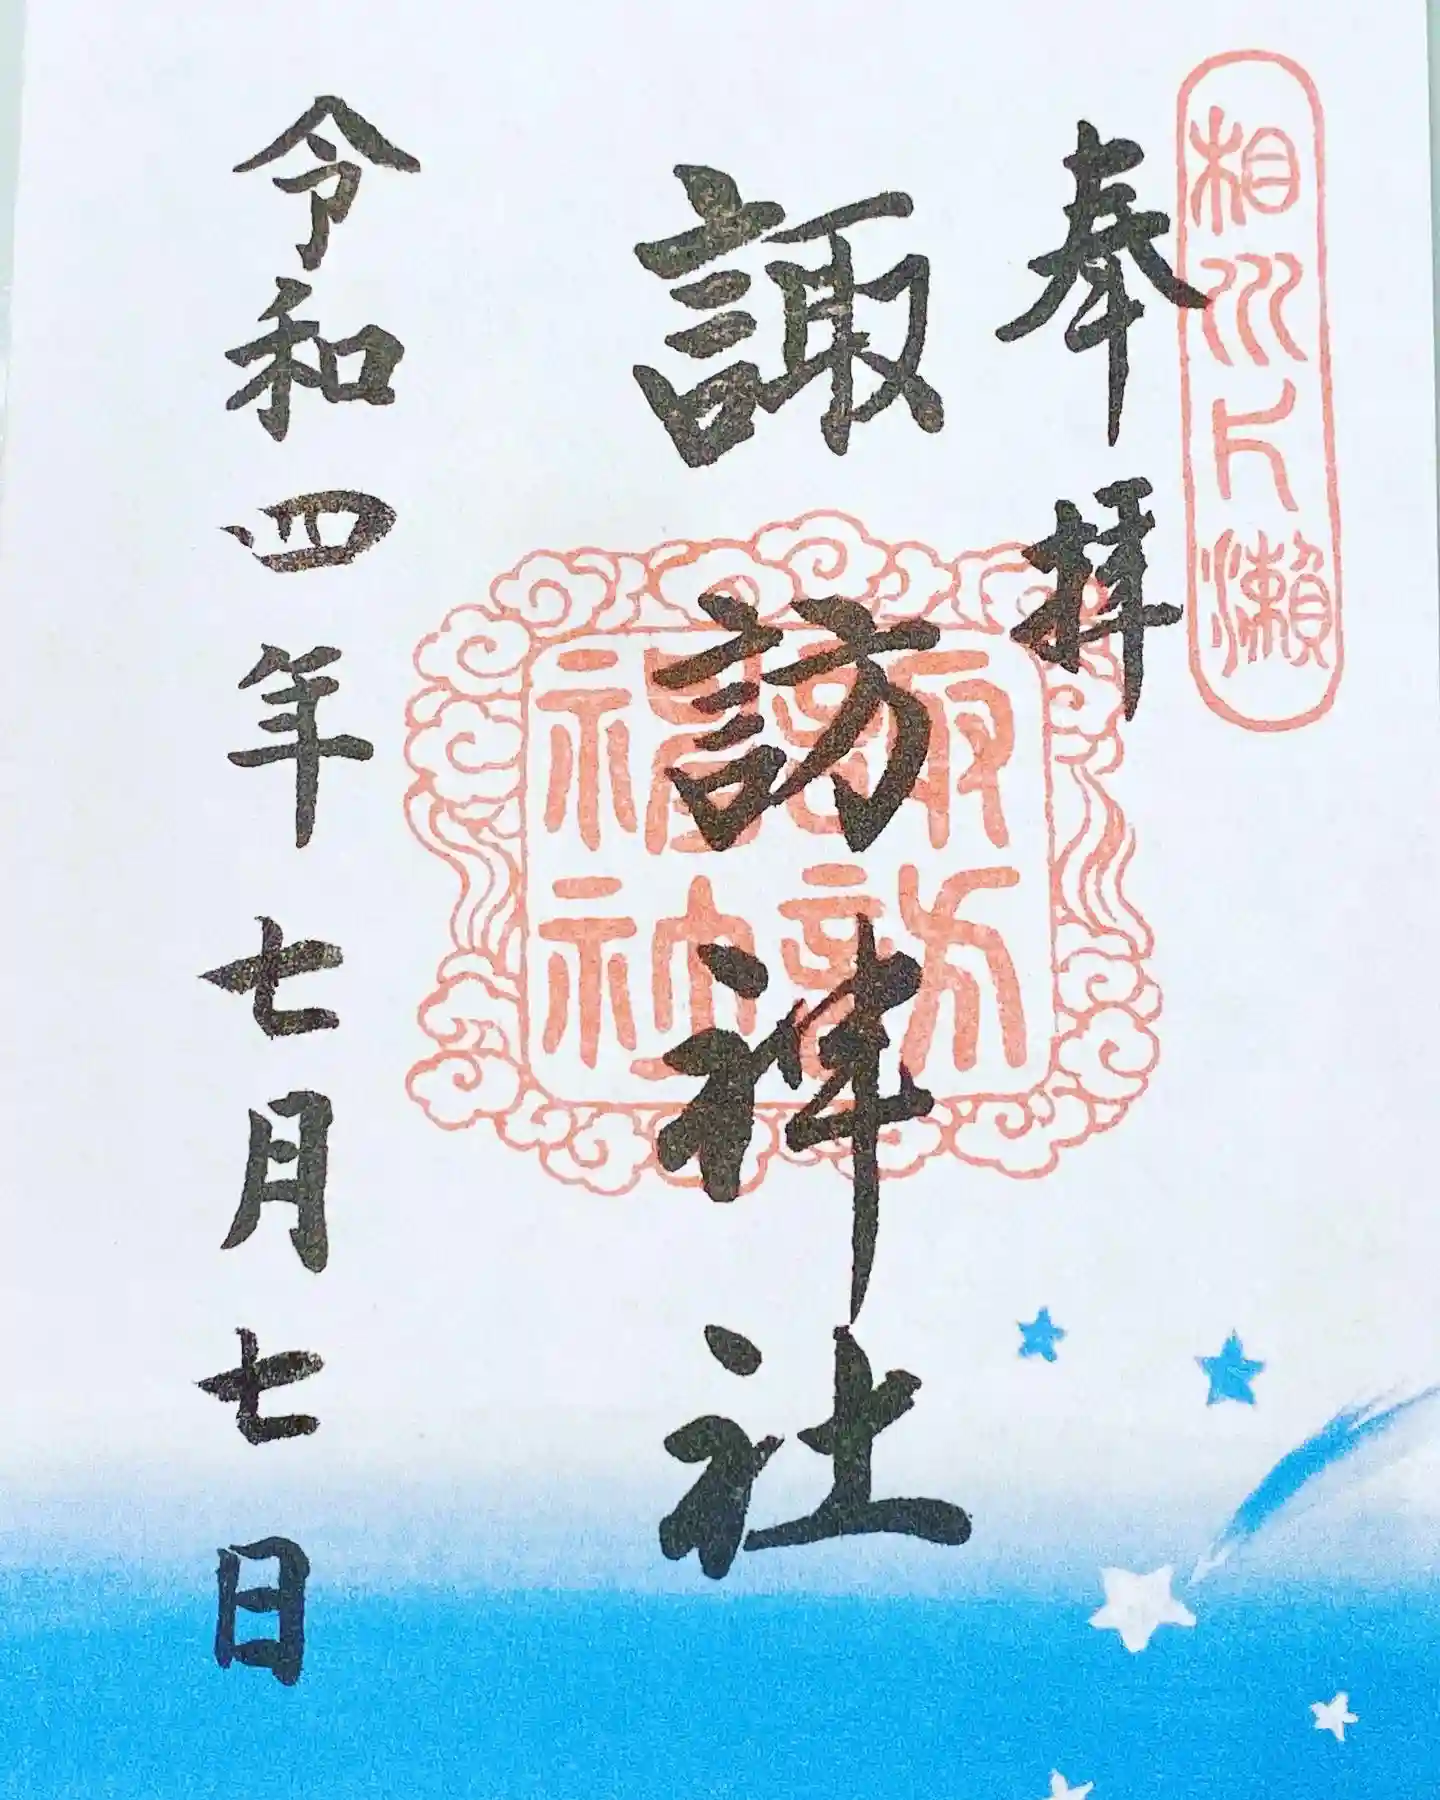 相州片瀬
奉拝
諏訪神社
諏訪
令和四年七月七日